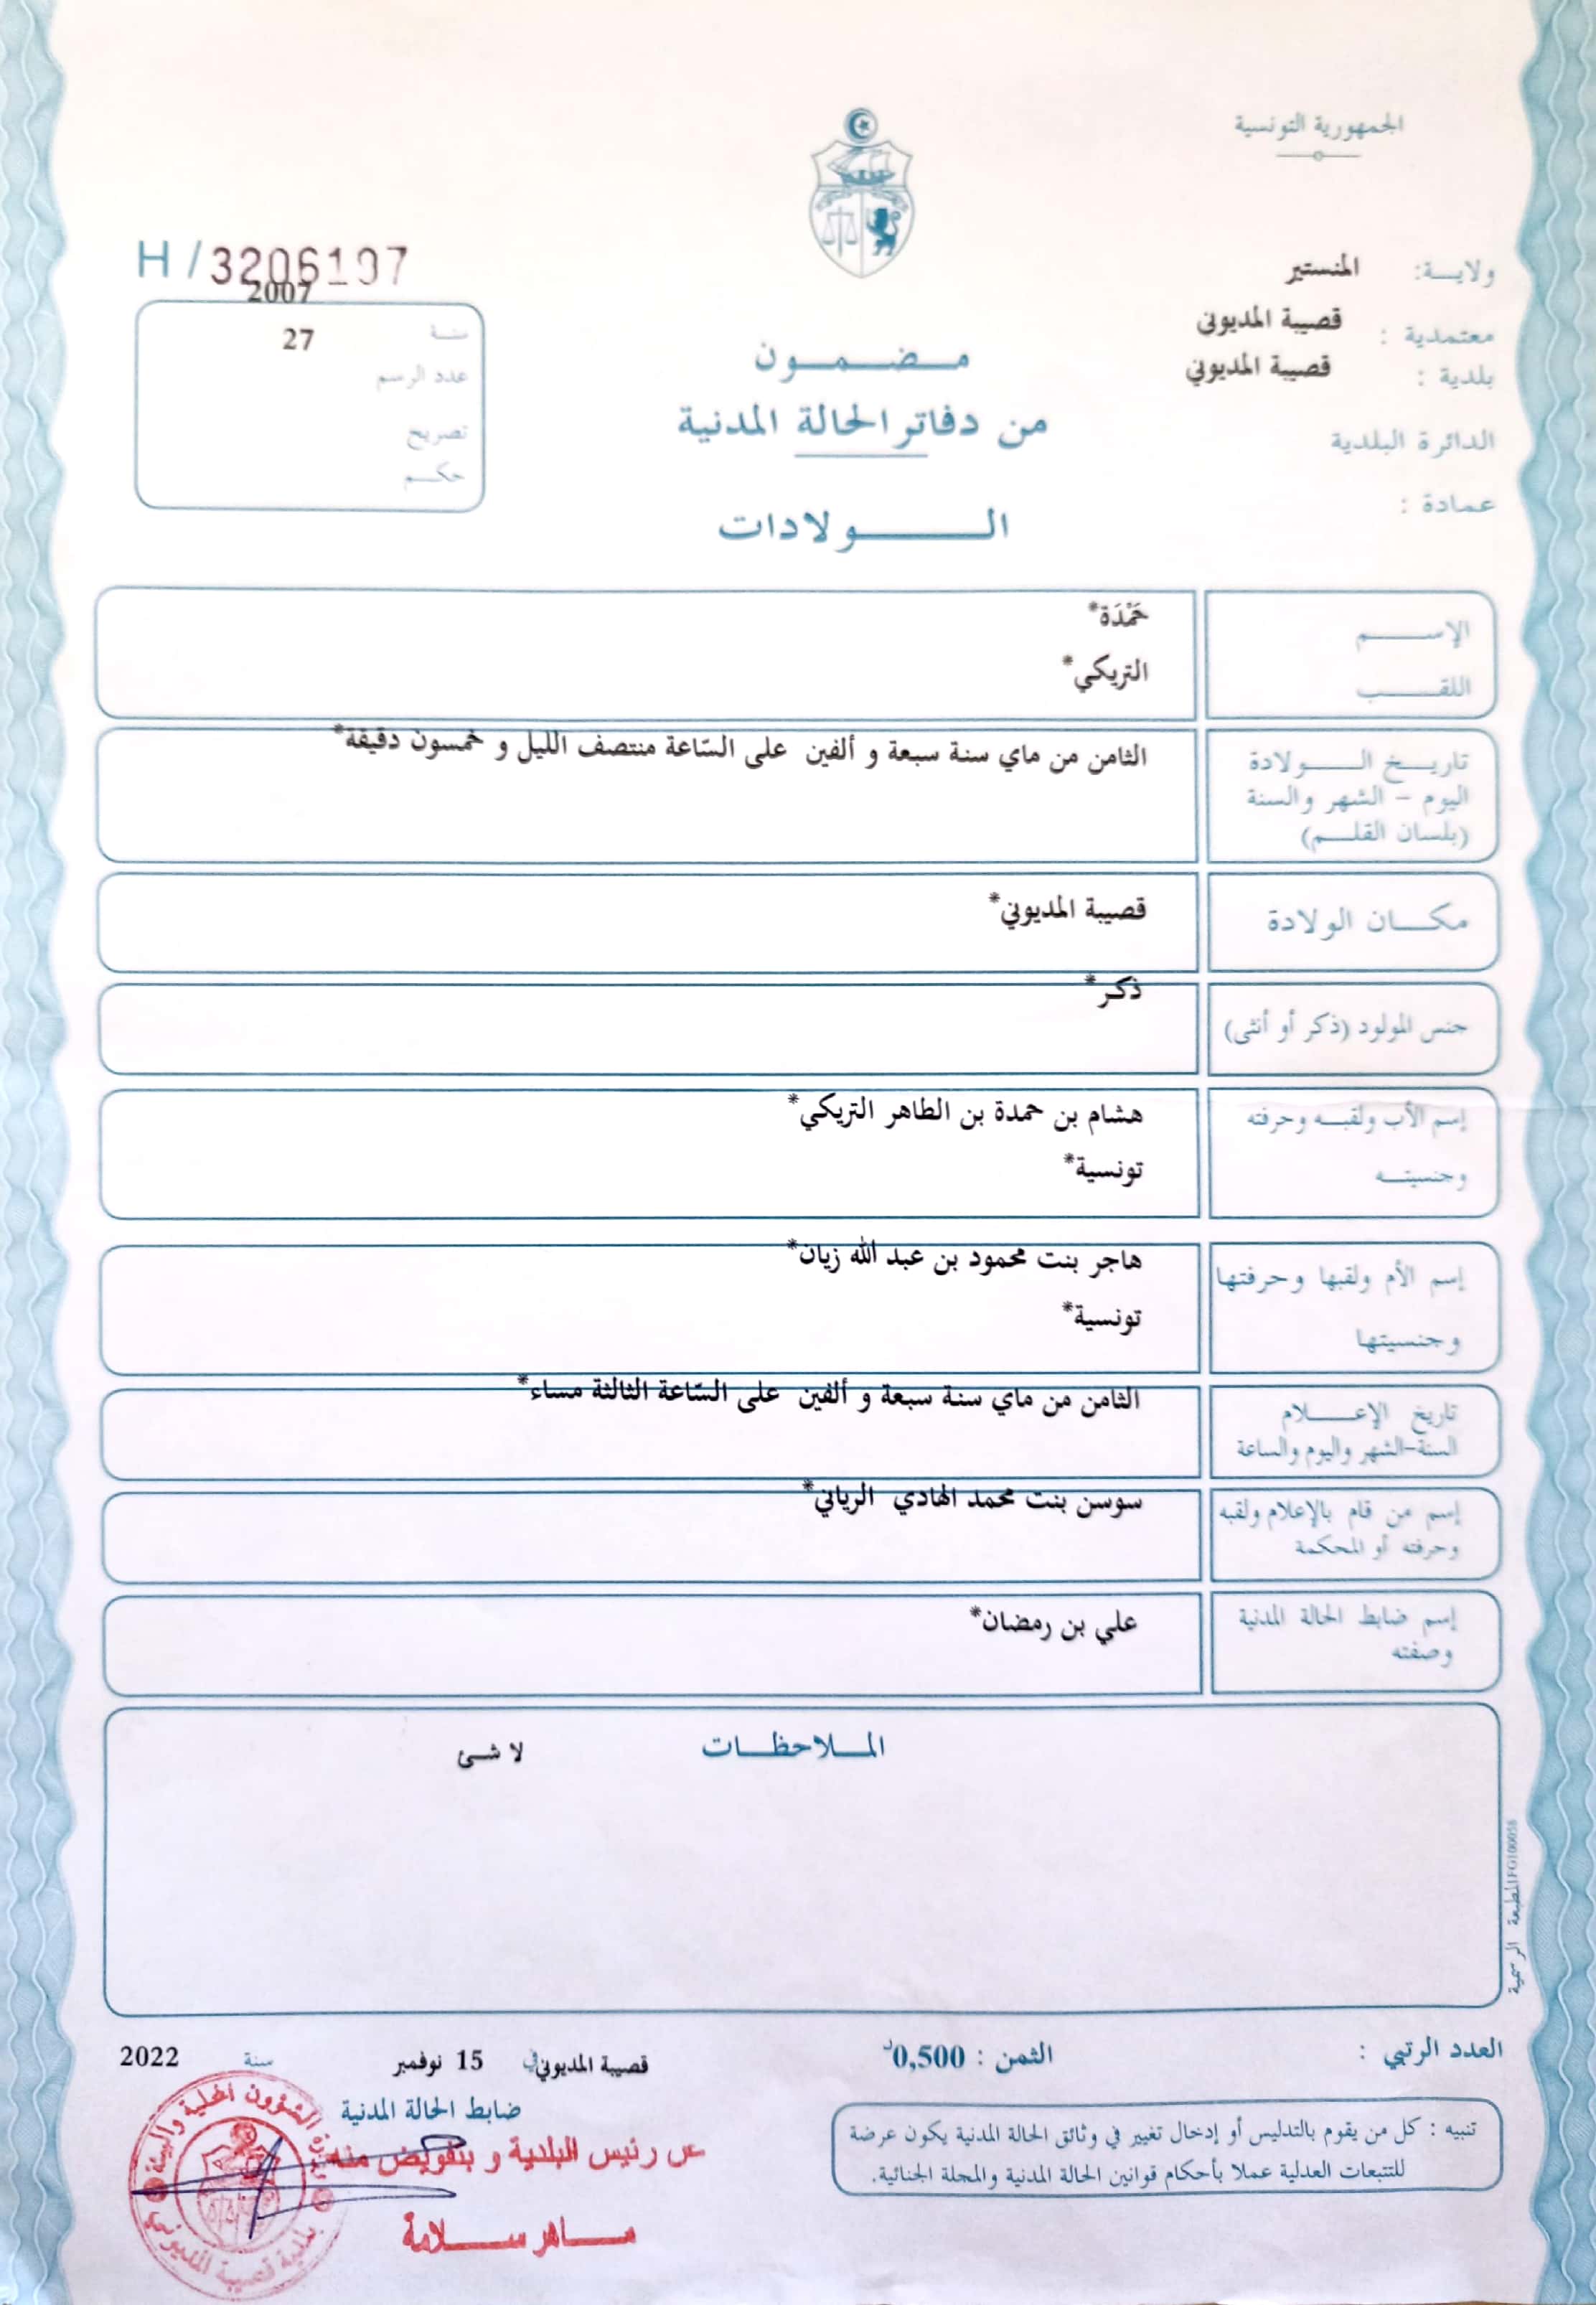 الجمهورية التونسية
ولايــة: المنستير
معتمدية : قصيبة المديوني
بلدية : قصيبة المديوني
الدائرة البلدية
عمادة :
مـضـمـون
من دفاتر الحالة المدنية
الـولادات
H / 3206197
2007
سنة 27
عدد الرسم
تصريح
حكـم
الإســم حَمْدَة*
اللقـب التريكي*
تاريـخ الـولادة الثامن من ماي سنة سبعة و ألفين على السّاعة منتصف الليل و خمسون دقيقة*
اليوم - الشهر والسنة
(بلسان القلـم)
مكـان الولادة قصيبة المديوني*
جنس المولود (ذكر أو أنثى) ذكر*
إسم الأب ولقبـه وحرفته هشام بن حمدة بن الطاهر التريكي*
وجنسيتـه تونسية*
إسم الأم ولقبها وحرفتها هاجر بنت محمود بن عبد الله زيان*
وجنسيتها تونسية*
تاريخ الإعـلام الثامن من ماي سنة سبعة و ألفين على السّاعة الثالثة مساء*
السنة-الشهر واليوم والساعة
إسم من قام بالإعلام ولقبه سوسن بنت محمد الهادي الرياني*
وحرفته أو المحكمة
إسم ضابط الحالة المدنية علي بن رمضان*
وصفته
المـلاحظـات لا شئ
المطبعة الرسمية FG100058
العدد الرتبي :
الثمن : 0,500د
قصيبة المديوني في 15 نوفمبر سنة 2022
ضابط الحالة المدنية
عن رئيس البلدية و بتفويض منه
ماهر سـلامة
وزارة الشؤون المحلية والبيئة
بلدية قصيبة المديوني
تنبيه : كل من يقوم بالتدليس أو إدخال تغيير في وثائق الحالة المدنية يكون عرضة
للتتبعات العدلية عملا بأحكام قوانين الحالة المدنية والمجلة الجنائية.